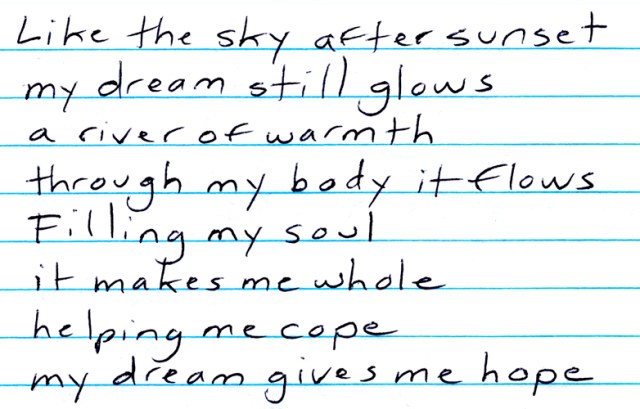 Like the sky after sunset
my dream still glows
a river of warmth
through my body it flows
Filling my soul
it makes me whole
helping me cope
my dream gives me hope